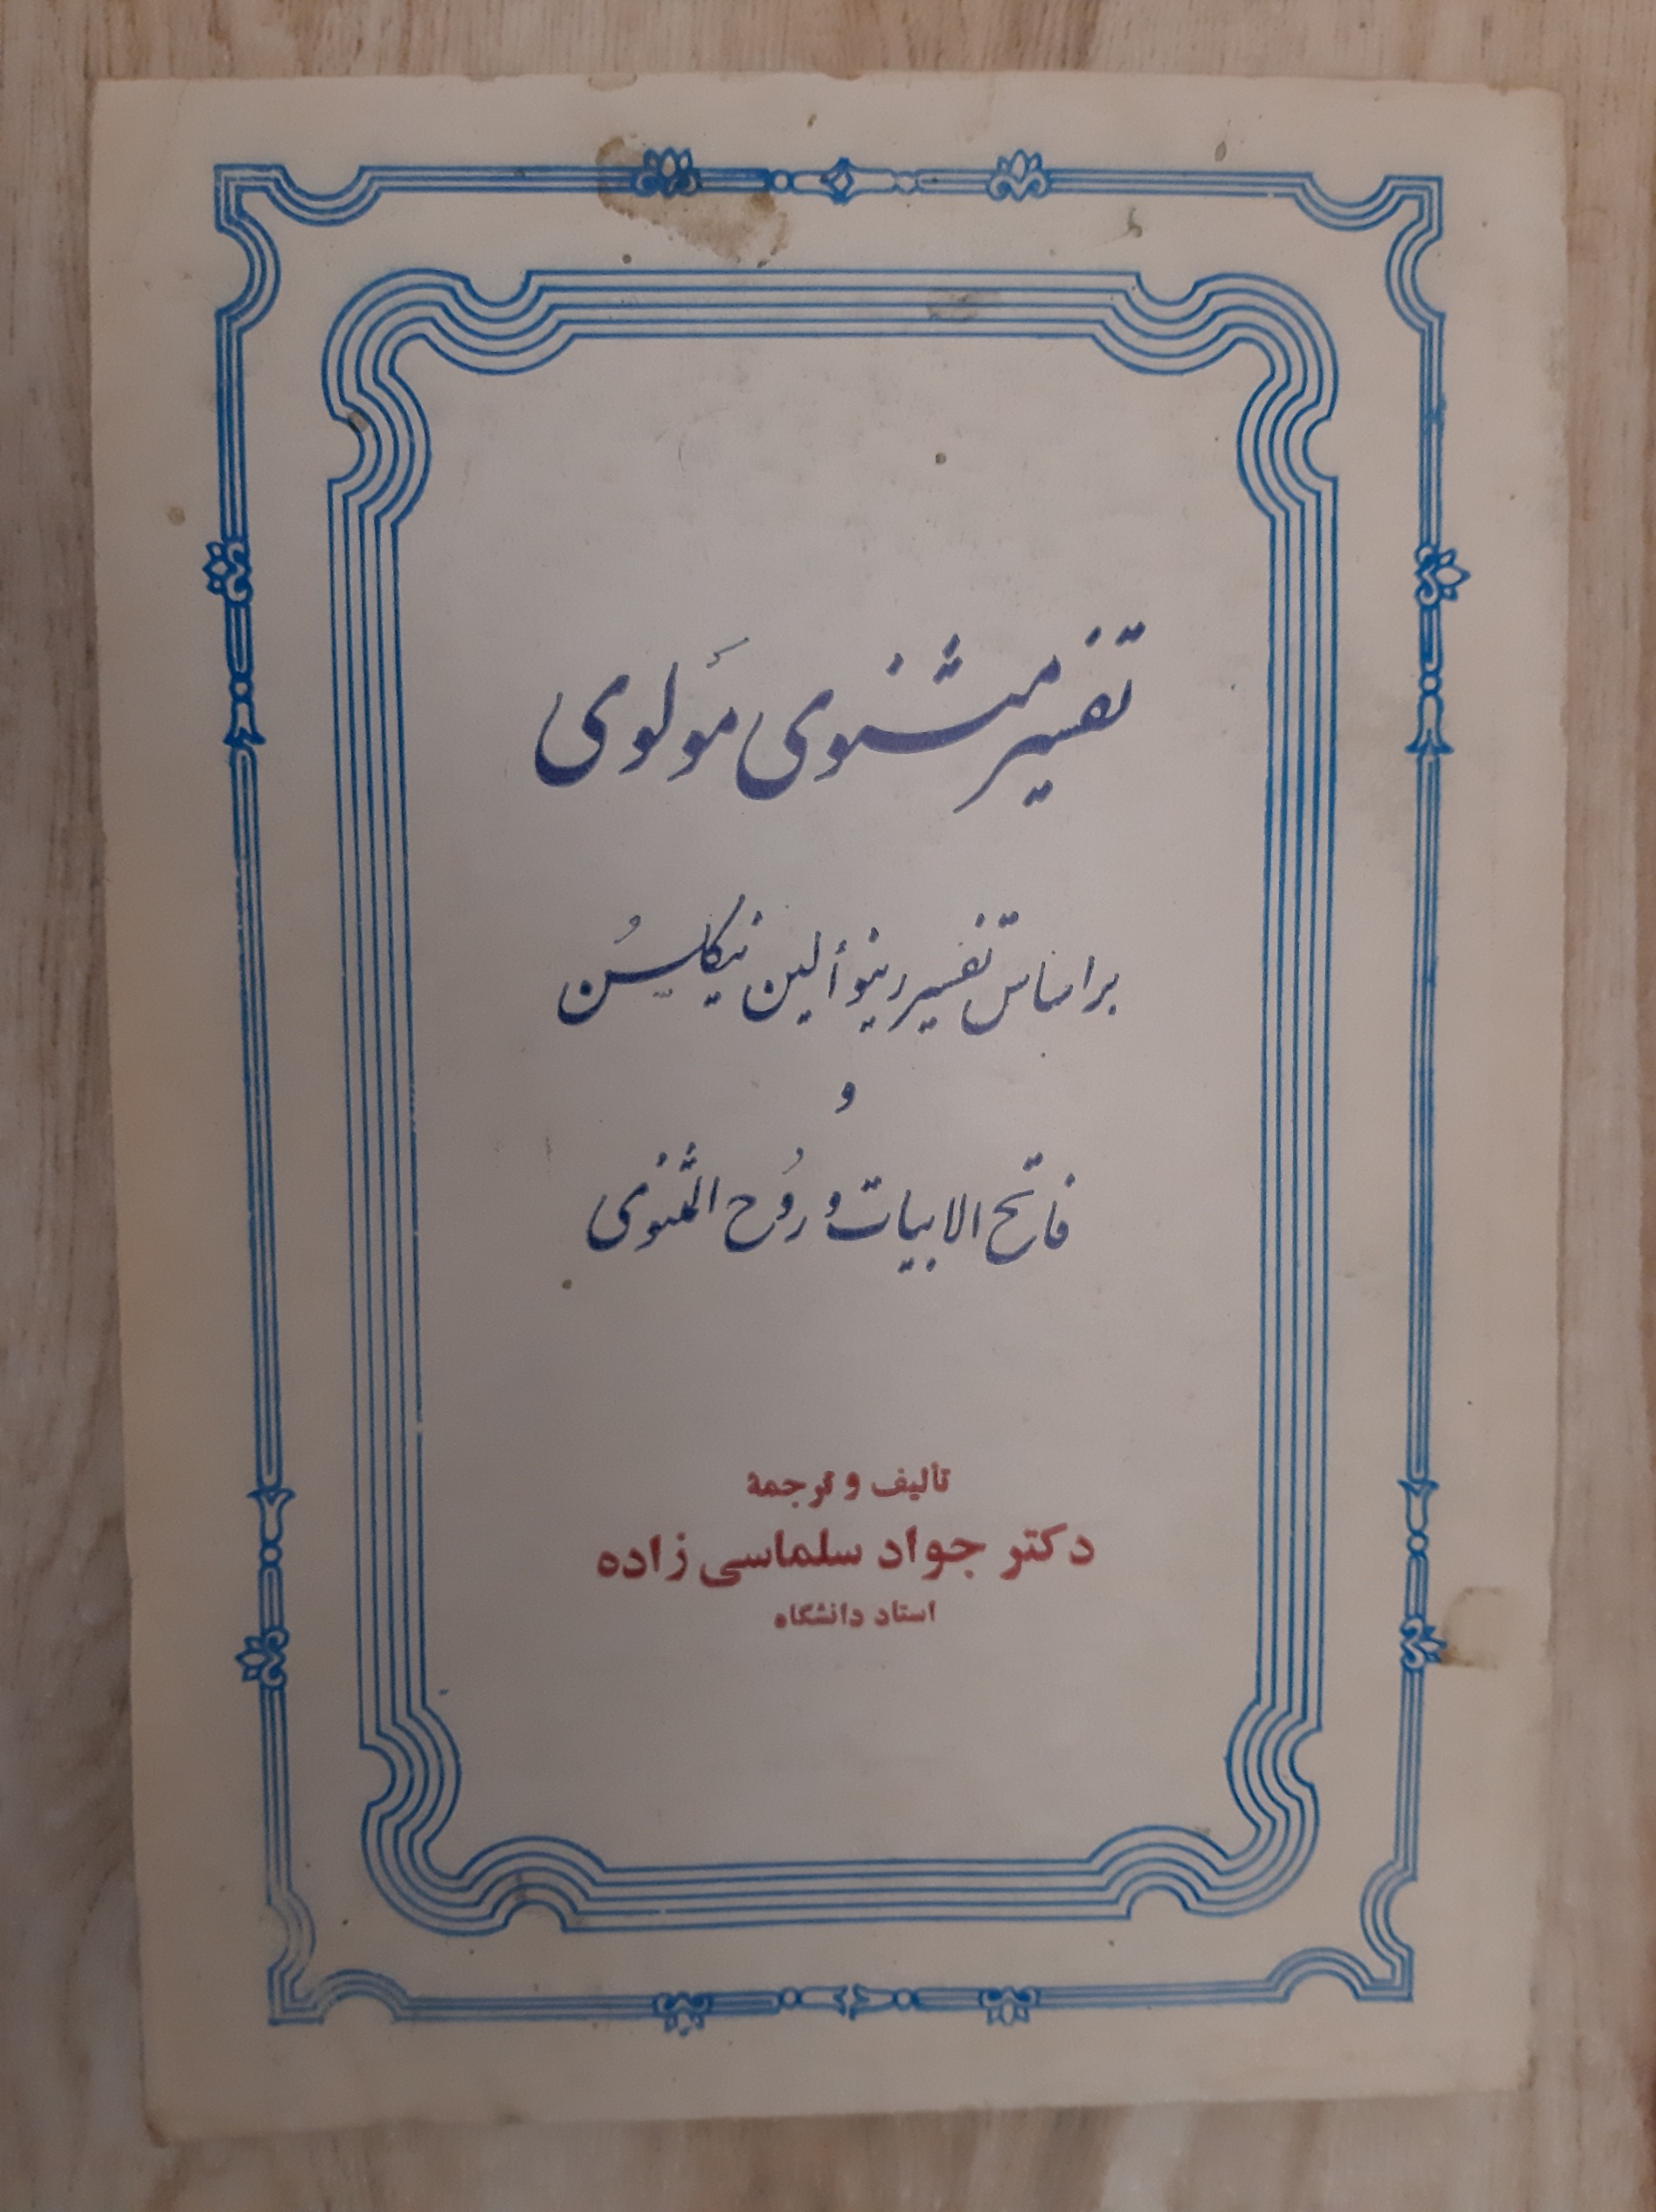 تفسیر مثنوی مَولوی
بر اساس تفسیر رینو ألین نیکلسُن
و
فاتح الابیات و رُوح المثنوی
تألیف و ترجمهٔ
دکتر جواد سلماسی زاده
استاد دانشگاه